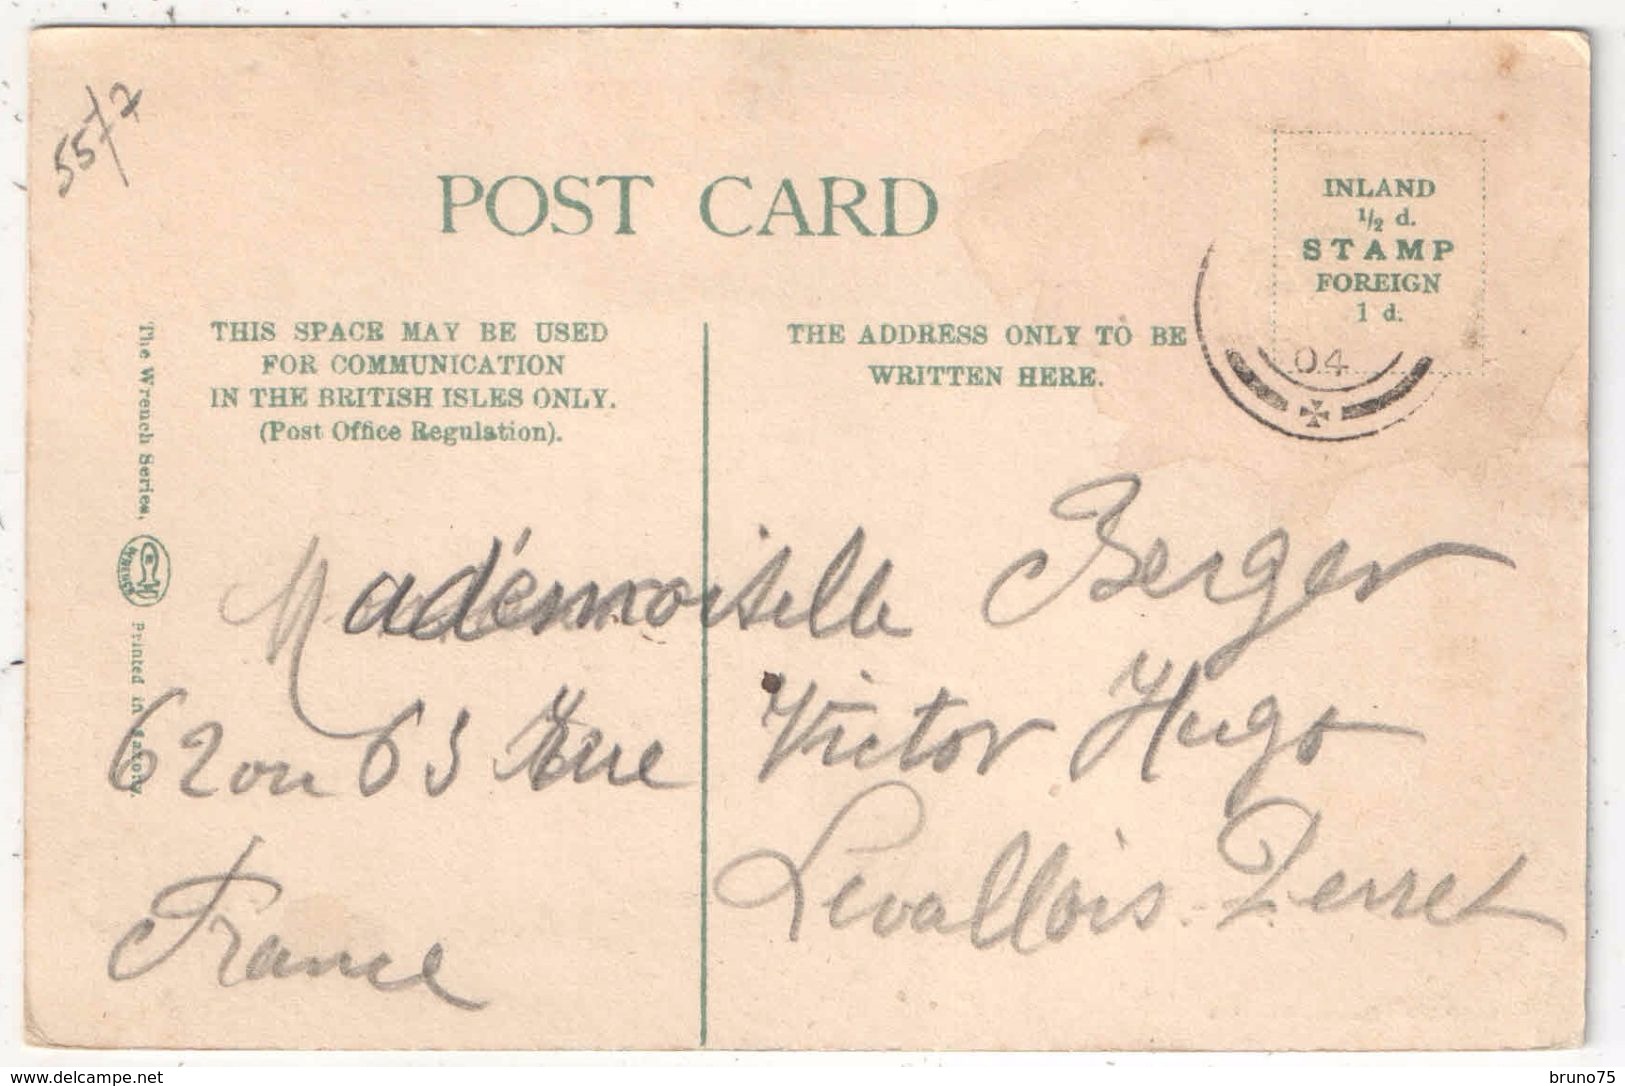 5577
POST CARD
INLAND
1/2 d.
STAMP
FOREIGN
1 d.
04
THIS SPACE MAY BE USED
FOR COMMUNICATION
IN THE BRITISH ISLES ONLY.
(Post Office Regulation).
THE ADDRESS ONLY TO BE
WRITTEN HERE.
The Wrench Series,
WRENCH
Printed in Saxony.
Mademoiselle Berger
62 ou 63 Rue Victor Hugo
Levallois-Perret
France
www.delcampe.net
bruno75